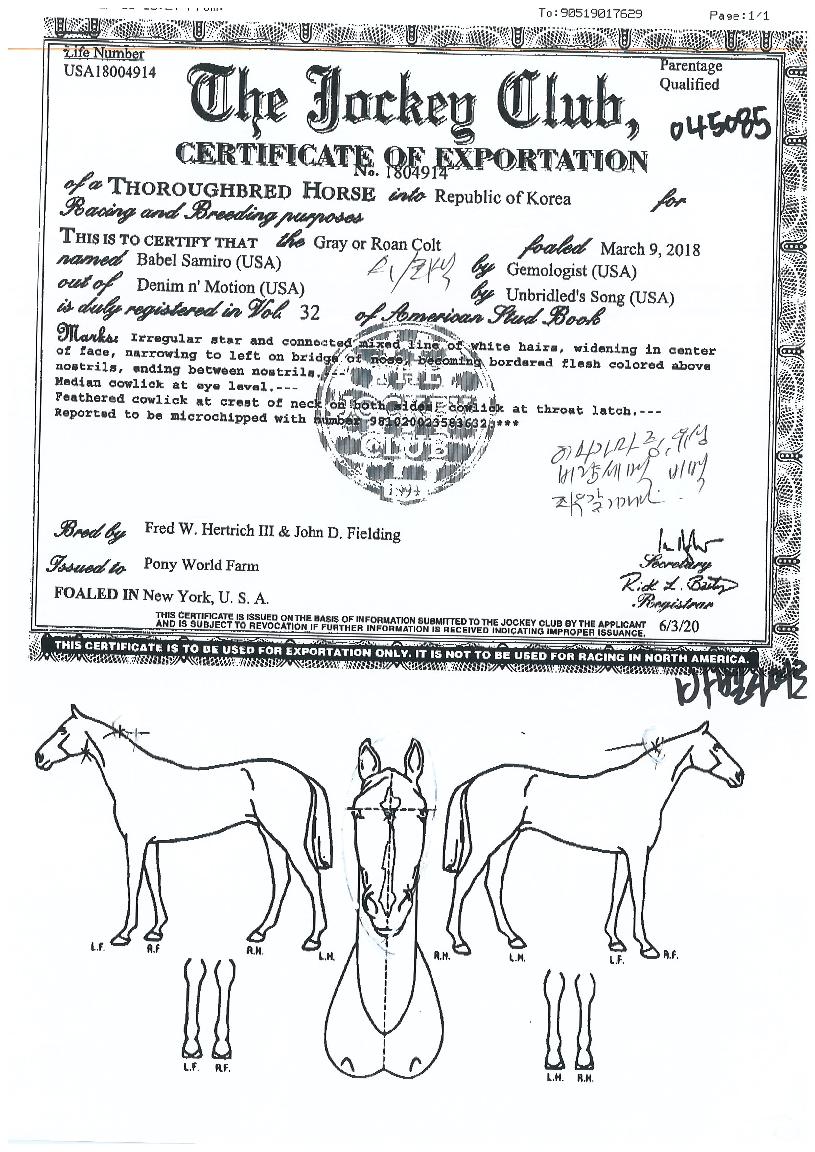 To:90519017629 Page:1/1
Life Number
USA18004914
Parentage
Qualified
The Jockey Club,
045085
CERTIFICATE OF EXPORTATION
No. 1804914
of a THOROUGHBRED HORSE into Republic of Korea for
Racing and Breeding purposes
THIS IS TO CERTIFY THAT the Gray or Roan Colt foaled March 9, 2018
named Babel Samiro (USA) by Gemologist (USA)
out of Denim n' Motion (USA) by Unbridled's Song (USA)
is duly registered in Vol. 32 of American Stud Book
Marks: Irregular star and connected mixed line of white hairs, widening in center
of face, narrowing to left on bridge of nose, becoming bordered flesh colored above
nostrils, ending between nostrils.---
Median cowlick at eye level.---
Feathered cowlick at crest of neck on both sides; cowlick at throat latch.---
Reported to be microchipped with number 981020023583632.***
THE
JOCKEY
CLUB
1894
Bred by Fred W. Hertrich III & John D. Fielding
Issued to Pony World Farm
Secretary
FOALED IN New York, U. S. A.
Registrar
THIS CERTIFICATE IS ISSUED ON THE BASIS OF INFORMATION SUBMITTED TO THE JOCKEY CLUB BY THE APPLICANT
AND IS SUBJECT TO REVOCATION IF FURTHER INFORMATION IS RECEIVED INDICATING IMPROPER ISSUANCE. 6/3/20
THIS CERTIFICATE IS TO BE USED FOR EXPORTATION ONLY. IT IS NOT TO BE USED FOR RACING IN NORTH AMERICA.
L.F. R.F. R.H. L.H. R.H. L.H. L.F. R.F.
L.F. R.F. L.H. R.H.